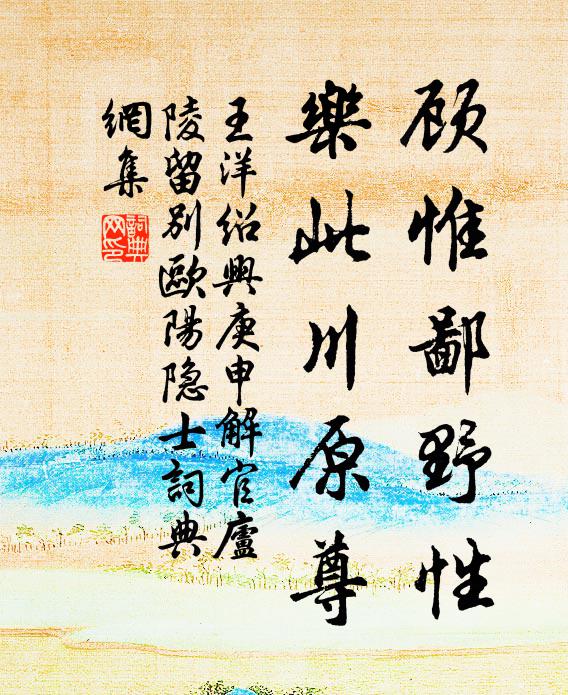 顾惟鄙野性
樂此川原尊
王洋绍興庚申解官廬
陵留别歐陽隐士詞典
網集
詞典网印